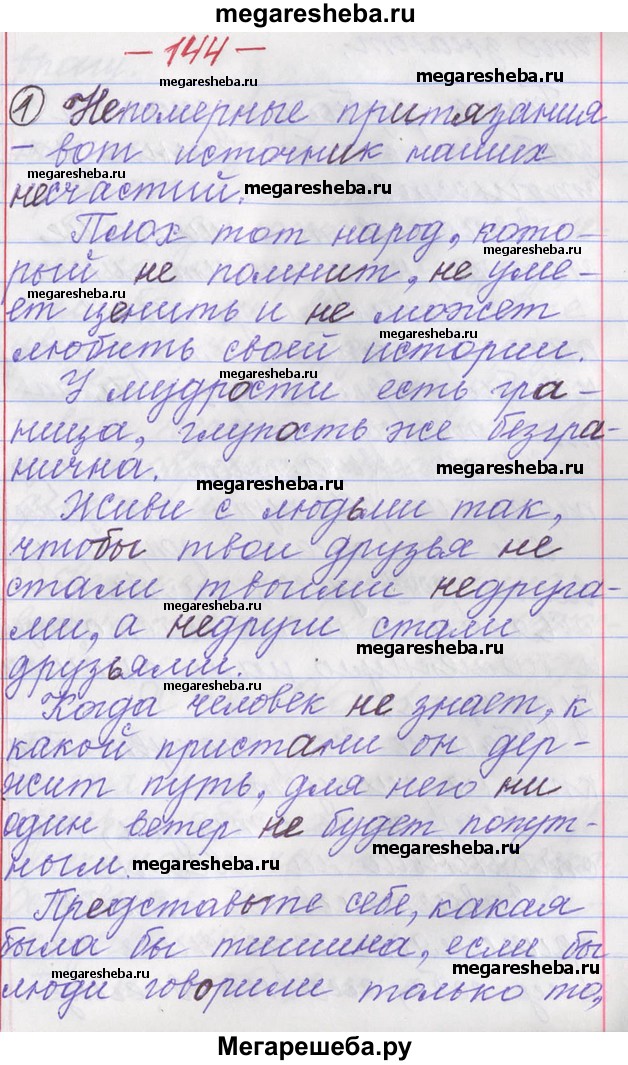 megaresheba.ru
- 144 -
megaresheba.ru
megaresheba.ru
① Непомерные притязания
- вот источник наших
несчастий.
megaresheba.ru
Плох тот народ, кото-
рый не помнит, не уме-
megaresheba.ru
megaresheba.ru
ет ценить и не может
любить своей истории.
megaresheba.ru
У мудрости есть гра-
ница, глупость же безгра-
нична.
megaresheba.ru
megaresheba.ru
Живи с людьми так,
чтобы твои друзья не
стали твоими недруга-
megaresheba.ru
ми, а недруги стали
друзьями.
megaresheba.ru
megaresheba.ru
Когда человек не знает, к
какой пристани он дер-
жит путь, для него ни
один ветер не будет попут-
ным.
megaresheba.ru
megaresheba.ru
Представьте себе, какая
была бы тишина, если бы
megaresheba.ru
megaresheba.ru
люди говорили только то,
Мегарешеба.ру